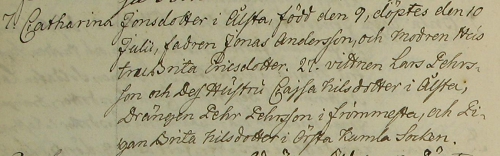 7. Catharina Jonsdotter i Ålsta, född den 9, döptes den 10
Julii, fadren Jonas Andersson, och modren Hus
tru Brita Ericsdotter. 27. vittnen Lars Pehrs-
son och Deß Hustru Cajsa Nilsdotter i Ålsta,
Drängen Pehr Pehrsson i Frömmesta, och Pi-
gan Brita Nilsdotter i Örsta Kumla Socken.